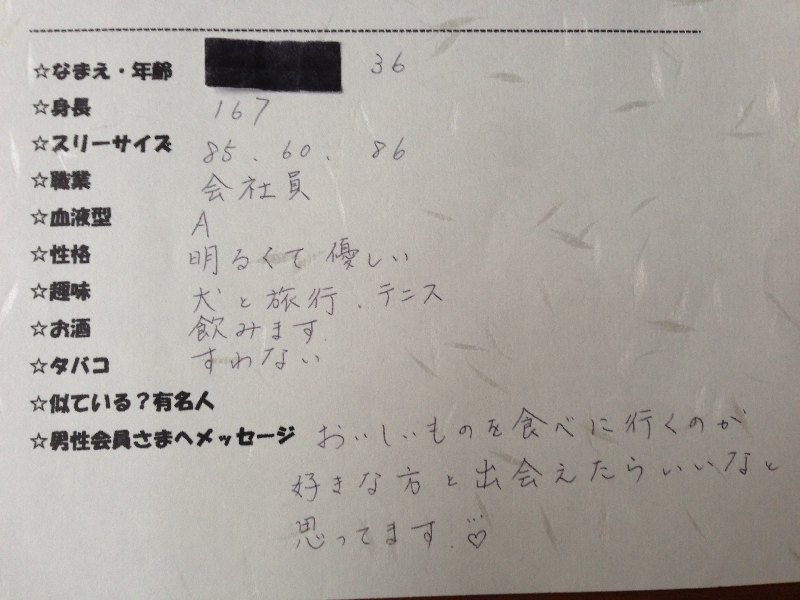 ☆なまえ・年齢 36
☆身長 167
☆スリーサイズ 85、60、86
☆職業 会社員
☆血液型 A
☆性格 明るくて優しい
☆趣味 犬と旅行、テニス
☆お酒 飲みます。
☆タバコ すわない
☆似ている?有名人
☆男性会員さまへメッセージ おいしいものを食べに行くのが
好きな方と出会えたらいいなと
思ってます。♡